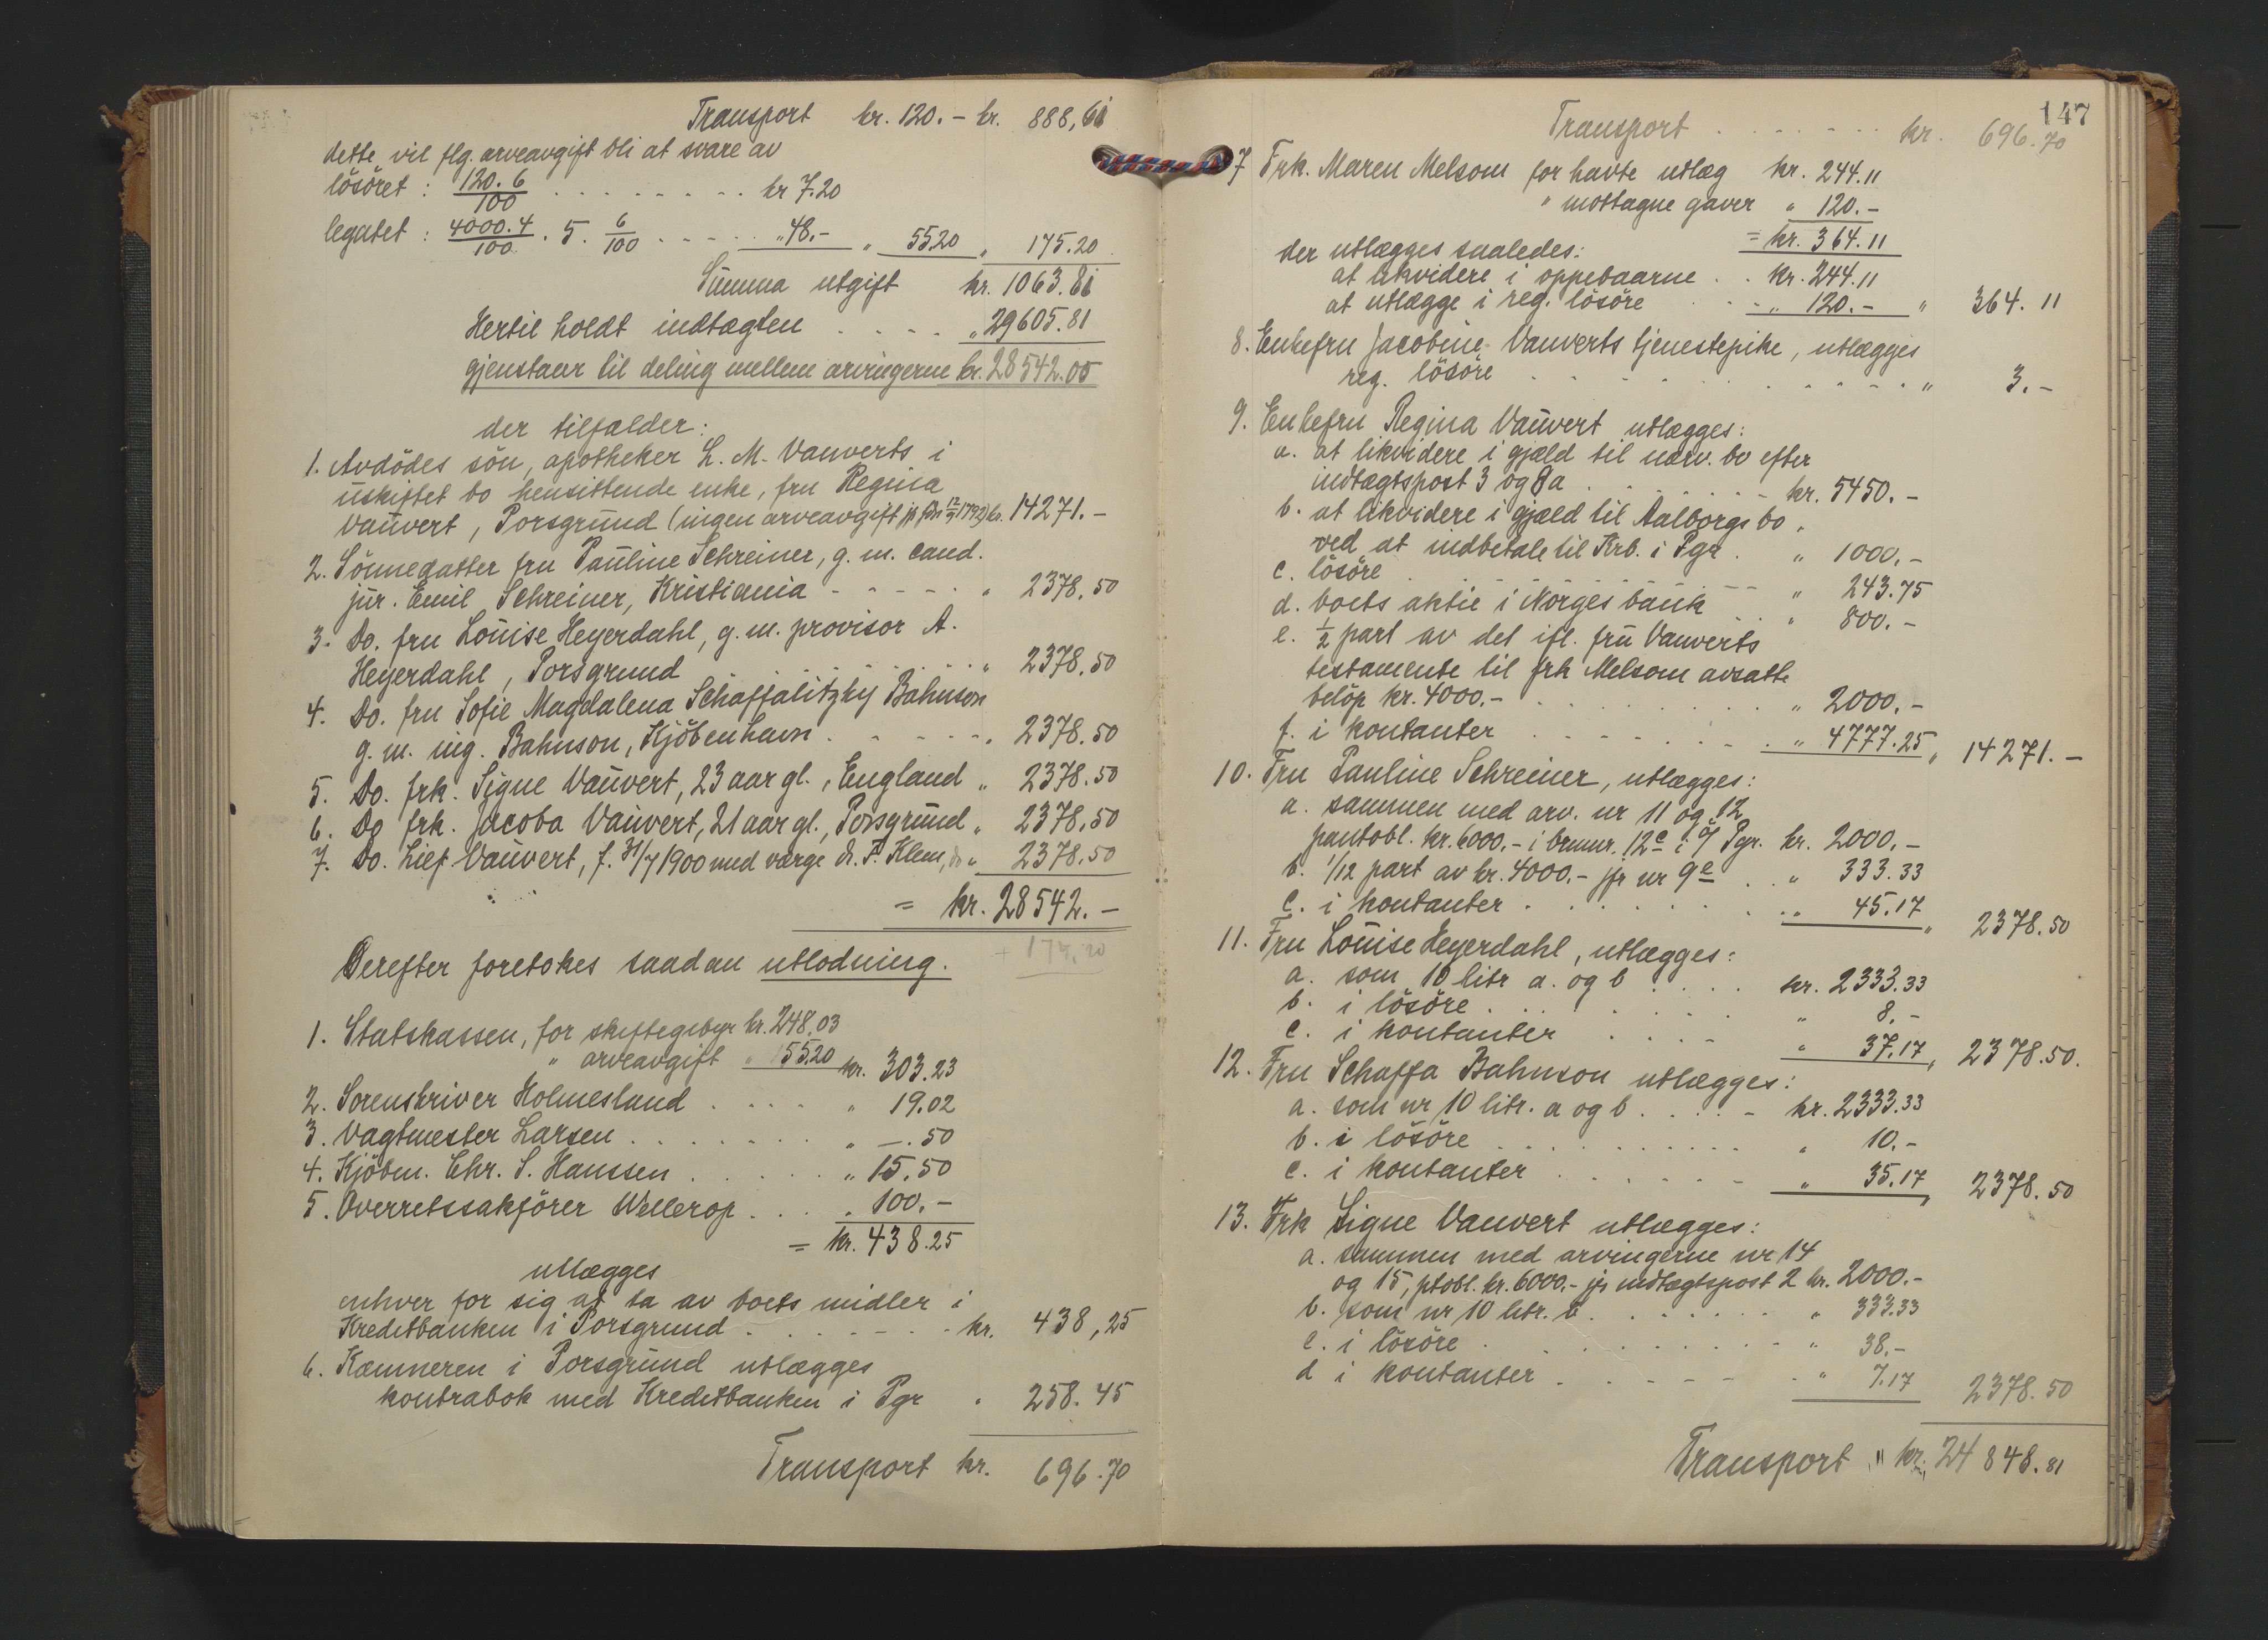 Transport kr. 120.- kr. 888,61
dette vil flg. arveavgift bli at svare av
lösöret : 120. 6 / 100 . . . . . . . . kr 7.20
legatet : 4000. 4 / 100 . 5. 6 / 100 . . . . . " 48.- " 55.20 " 175.20
Summa utgift kr. 1063.81
Hertil holdt indtægten . . . . " 29605.81
gjenstaar til deling mellem arvingerne kr. 28542.00
der tilfalder:
1. Avdödes sön, apotheker L. M. Vauverts i
uskiftet bo hensittende enke, fru Regina
Vauvert, Porsgrund (ingen arveavgift jfr fdn 12/9 1792) kr. 14271.-
2. Sönnedatter fru Pauline Schreiner, g. m. cand.
jur. Emil Schreiner, Kristiania - - - - - " 2378.50
3. Do. fru Louise Heyerdahl, g. m. provisor A.
Heyerdahl, Porsgrund . . . . . . . " 2378.50
4. Do. fru Sofie Magdalena Schaffalitzky Bahnson
g. m. ing. Bahnson, Kjöbenhavn . - - - - " 2378.50
5. Do. frk. Signe Vauvert, 23 aar gl., England " 2378.50
6. Do frk. Jacoba Vauvert, 21 aar gl., Porsgrund " 2378.50
7. Do. Lief Vauvert, f. 31/7 1900 med værge dr. F. Klem, do " 2378.50
= kr. 28542.-
+ 175,20
Derefter foretokes saadan utlodning.
1. Statskassen, for skiftegebyr kr. 248.03
" arveavgift " 55.20 kr. 303.23
2. Sorenskriver Holmesland . . . . " 19.02
3. Vagtmester Larsen . . . . . . . " -.50
4. Kjöbm. Chr. S. Hanssen . . . . . " 15.50
5. Overretssakförer Wellerop . . . " 100.-
= kr. 438.25
utlægges
enhver for sig at ta av boets midler i
Kreditbanken i Porsgrund . . . . . . . kr. 438,25
6. Kæmneren i Porsgrund utlægges
kontrabok med Kreditbanken i Pgr " 258.45
Transport kr. 696.70
147
Transport . . . . . . . kr. 696.70
7 Frk. Maren Melsom for havte utlæg kr. 244.11
" mottagne gaver " 120.-
= kr. 364.11
der utlægges saaledes:
at likvidere i oppebaarne . . kr. 244.11
at utlægge i reg. lösöre . . . " 120.- " 364.11
8. Enkefru Jacobine Vauverts tjenestepike, utlægges
reg. lösöre . . . . . . . . . . . . " 3.-
9. Enkefru Regina Vauvert utlægges:
a. at likvidere i gjæld til nærv. bo efter
indtægtspost 3 og 8a . . . . . . . kr. 5450.-
b. at likvidere i gjæld til Aalborgs bo,
ved at indbetale til Krb. i Pgr . " 1000.-
c. lösöre . . . . . . . . . " 243.75
d. boets aktie i Norges bank . . " 800.-
e. 1/2 part av det ifl. fru Vauverts
testamente til frk Melsom avsatte
belöp kr. 4000.- . . . . . . . . " 2000.-
f. i kontanter . . . . . . . . " 4777.25 " 14271.-
10. Fru Pauline Schreiner, utlægges:
a. sammen med arv. nr 11 og 12
pantobl. kr. 6000.- i brmnr. 12c i ö/ Pgr. kr. 2000.-
b. 1/12 part av kr. 4000.- jfr nr 9e . . " 333.33
c. i kontanter . . . . . . . . " 45.17 " 2378.50
11. Fru Louise Heyerdahl, utlægges:
a. som 10 litr a. og b . . . . kr. 2333.33
b. i lösöre . . . . . . . . " 8.-
c. i kontanter . . . . " 37.17 " 2378.50.
12. Fru Schaffa Bahnson utlægges:
a. som nr 10 litr. a og b . . . . kr. 2333.33
b. i lösöre . . . . . . . . . " 10.-
c. i kontanter . . . . . . . " 35.17 " 2378.50
13. Frk Signe Vauvert utlægges:
a. sammen med arvingerne nr 14
og 15, ptobl. kr. 6000.- jfr indtægtspost 2 kr. 2000.-
b. som nr 10 litr. b . . . . . . " 333.33
c. i lösöre . . . . . . . . . " 38.-
d i kontanter . . . . . . . " 7.17 2378.50
Transport " kr. 24848.81